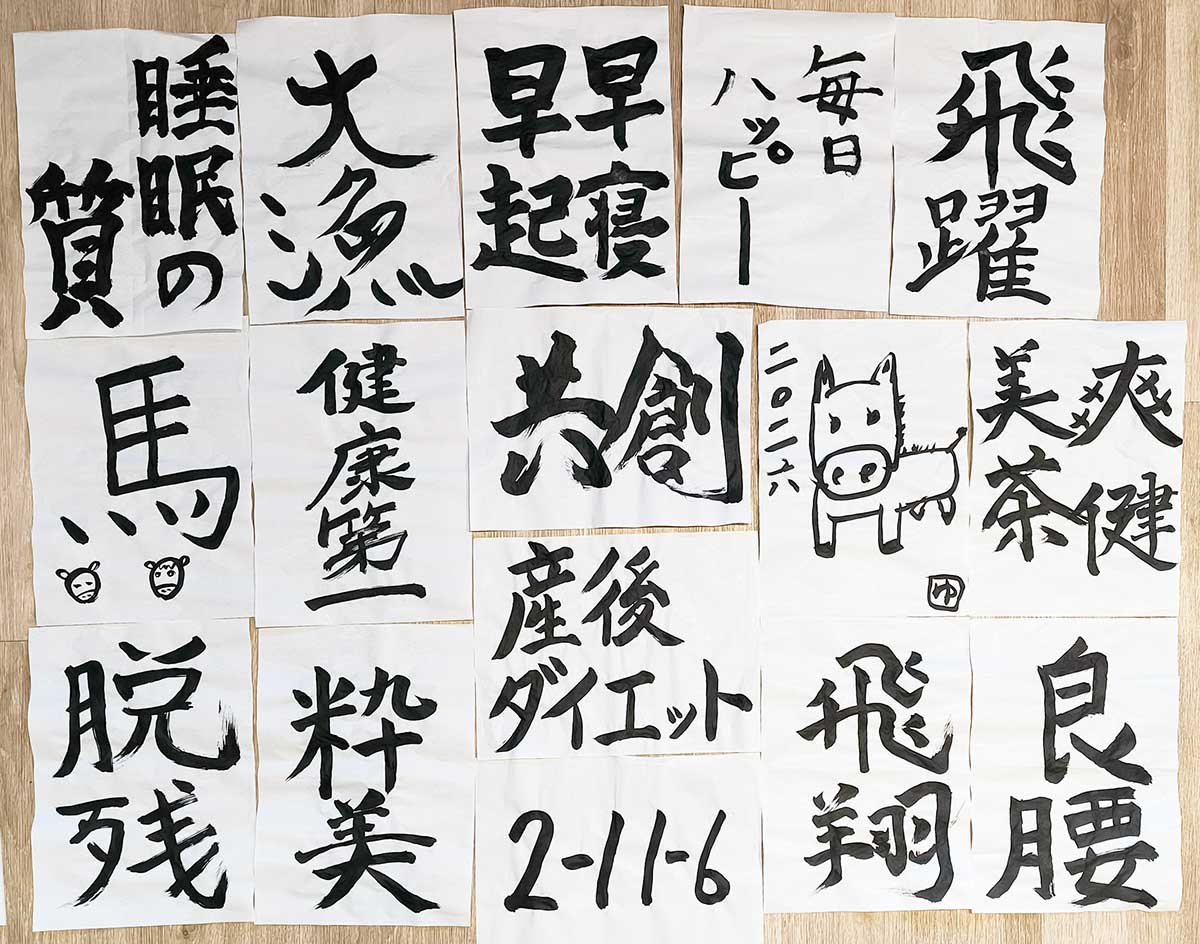 睡眠の
質
大漁
早寝
早起
毎日
ハッピー
飛躍
馬
健康第一
共創
二〇二六
ゆ
爽健
美茶
産後
ダイエット
脱残
粋美
2-11-6
飛翔
良腰